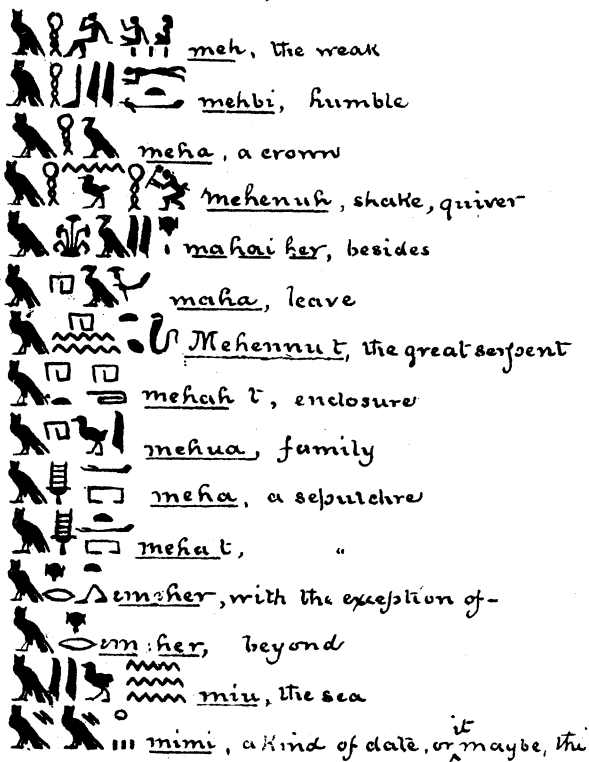 meh, the weak
mehbi, humble
meha, a crown
mehenuh, shake, quiver
mahai her, besides
maha, leave
Mehennu t, the great serpent
mehah t, enclosure
mehua, family
meha, a sepulchre
meha t, "
em her, with the exception of-
em : her, beyond
miu, the sea
mimi, a kind of date, or it maybe, the